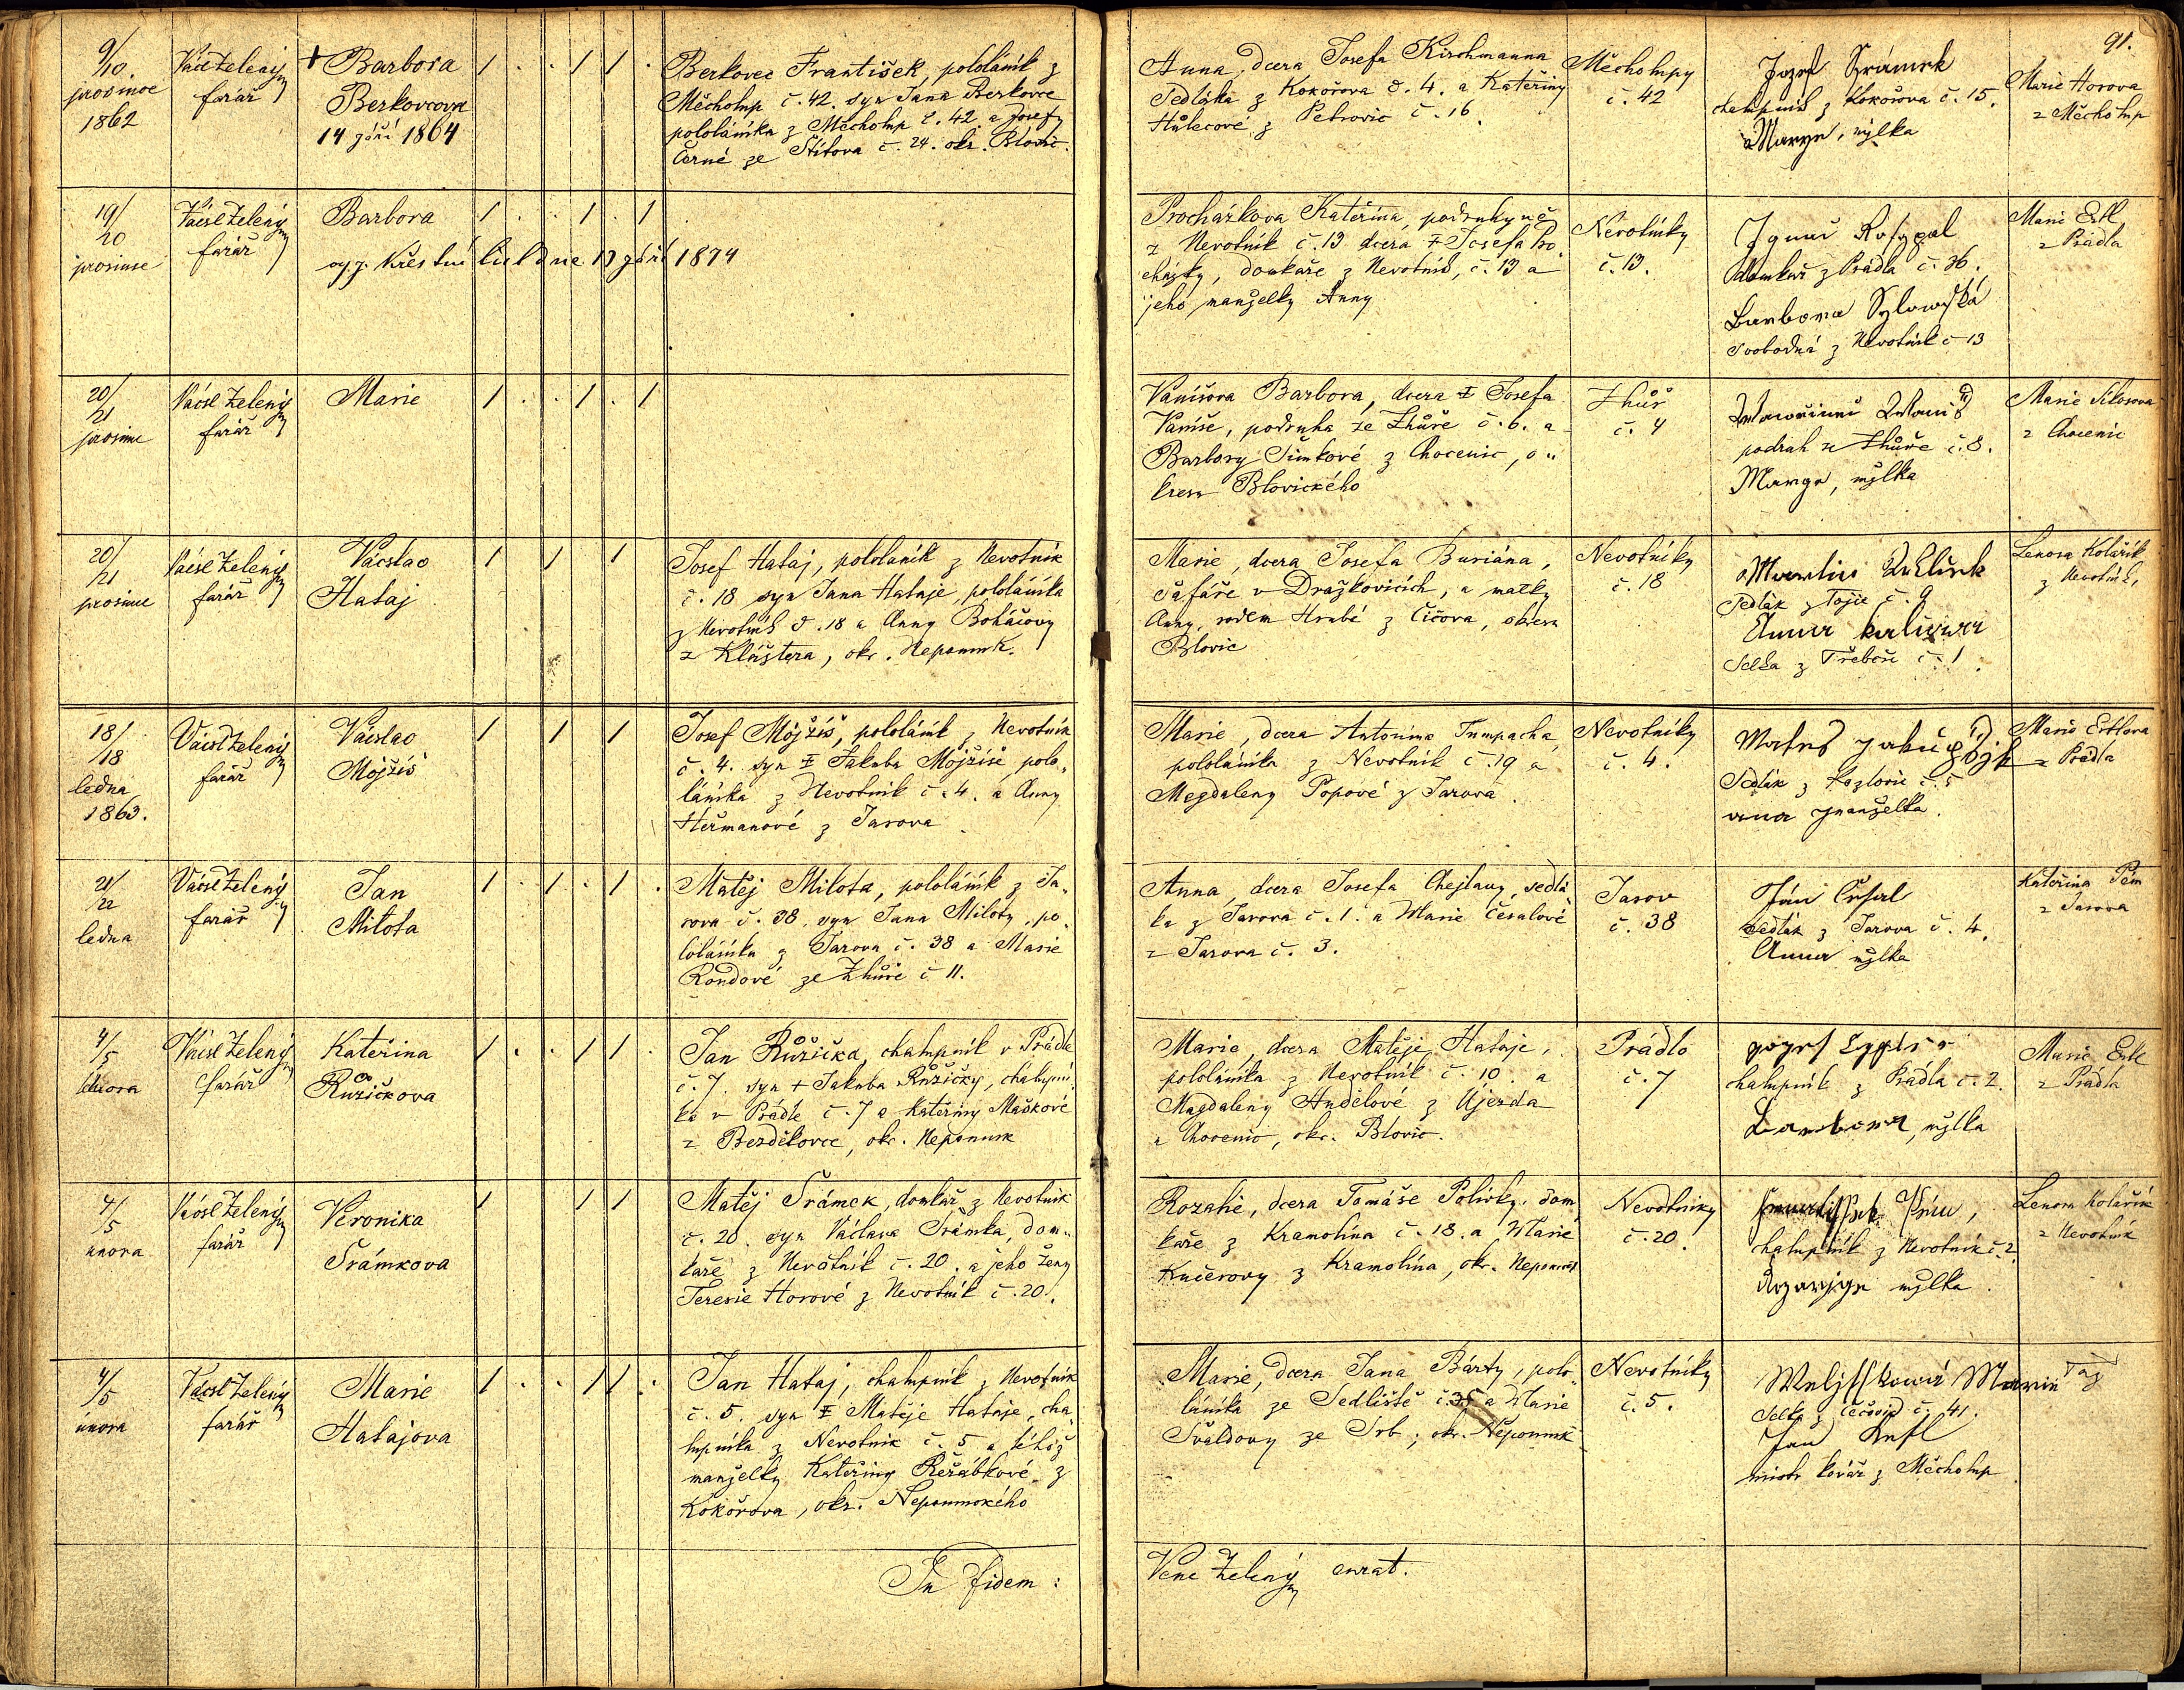 91.
9/10.
prosince
1862
Václ Zelený
farář
+ Barbora
Berkovcova
14 září 1864
1 . . 1 1 .
Berkovec František, pololáník z
Měcholup č. 42. syn Jana Berkovce
pololáníka z Měcholup č. 42 a Josefy
Černé ze Štítova č. 24. okr. Blovic.
Anna, dcera Josefa Kirschmanna
Sedláka z Kokořova č. 4. a Kateřiny
z Petrovic č. 16.
Měcholupy
č. 42
Jozef Šrámek
chalupník z Kokořova č. 15.
Marye, mžlka
Marie Horova
z Měcholup
19/20
prosince
Václ Zelený
farář
Barbora
1 . . 1 . 1
křestní list dne 13 září 1874
Procházkova Kateřina, podruhyně
z Nevotník č. 13 dcera ‡ Josefa Pro
cházky, domkáře z Nevotník, č. 13 a
jeho manželky Anny
Nevotníky
č. 13.
Ignac Rosypal
domkař z Prádla č. 36.
Barbora
Svobodná z Nevotník č 13
Marie Ertl
z Prádla
20/21
prosince
Václ Zelený
farář
Marie
1 . . 1 . 1
Vaníšova Barbora, dcera ‡ Josefa
Vaníše, podruha ze Zhůře č. 6. a
Barbory Šimkové z Chocenic, o„
kresu Blovického
Zhůř
č. 4
podruh ze Zhůře č. 8.
Marye, mžlka
Marie
z Chocenic
20/21
prosince
Václ Zelený
farář
Václav
Hataj
1 1 1
Josef Hataj, pololáník z Nevotník
č. 18 syn Jana Hataje, pololáníka
z Nevotník č. 18 a Anny Boháčovy
z Kláštera, okr. Nepomuk.
Marie, dcera Josefa Buriána,
šafáře v Dražkovicích, a matky
Anny, rodem Hrubé z Čičova, okresu
Blovic
Nevotníky
č. 18
Martin
Sedlák z č. 9
Anna
Selka z Třebčic č. 1.
Lenora Kolářík
z Nevotník,
18/18
ledna
1863.
Václ Zelený
farář
Václav
Mojžíš
1 1 1
Josef Mojžíš, pololáník z Nevotník
č. 4. syn ‡ Jakuba Mojžíše polo„
láníka z Nevotník č. 4. a Anny
Heřmanové z Jarova
Marie, dcera Antonína Tumpacha,
pololáníka z Nevotník č. 19 a
Magdaleny Popové z Jarova.
Nevotníky
č. 4.
Sedlák z Kozlovic č. 5
ana manželka.
Marie Ertlova
z Prádla
21/22
ledna
Václ Zelený
farář
Jan
Milota
1 . 1 . 1 .
Matěj Milota, pololáník z Ja„
rova č. 38. syn Jana Miloty, po„
loláníka z Jarova č. 38 a Marie
Rondové ze Zhůře č 11.
Anna, dcera Josefa Chejlavy, sedlá
ka z Jarova č. 1. a Marie Česalové
z Jarova č. 3.
Jarov
č. 38
Ján Česal
Sedlák z Jarova č. 4.
Anna mžlka
Kateřina
z Jarova
4/5
února
Václ Zelený
farář
Kateřina
Růžičkova
1 . . 1 1 .
Jan Růžička, chalupník v Prádle
č. 7. syn + Jakuba Růžičky, chalupní
ka v Prádle č. 7 a Kateřiny Maškové
z Bezděkovce, okr. Nepomuk
Marie, dcera Matěje Hataje,
pololáníka z Nevotník č. 10. a
Magdaleny Andělové z Újezda
u Chocenic, okr. Blovic.
Prádlo
č. 7
chalupník z Prádla č. 2.
Barbora, mžlka
Marie Ertl
z Prádla
4/5
února
Václ Zelený
farář
Veronika
Šrámkova
1 1 1
Matěj Šrámek, domkář z Nevotník
č. 20. syn Václava Šrámka, dom„
káře z Nevotník č. 20. a jeho ženy
Terezie Horové z Nevotník č. 20.
Rozalie, dcera Tomáše Polívky, dom
káře z Kramolína č. 18. a Marie
Kučerovy z Kramolína, okr. Nepomuk
Nevotníky
č. 20.
chalupník z Nevotník č. 2
mžlka.
Lenora Kolářík
z Nevotník
4/5
února
Václ Zelený
farář
Marie
Hatajova
1 . . 1 1 .
Jan Hataj, chalupník z Nevotník
č. 5. syn ‡ Matěje Hataje, cha„
lupníka z Nevotník č. 5 a téhož
manželky Kateřiny Řeřábkové z
Kokořova, okr. Nepomuckého
Marie, dcera Jana Bárty, polo„
láníka ze Sedliště č. 35 a Marie
Švaldovy ze Srb, okr. Nepomuk
Nevotníky
č. 5.
Marie
Selka z č. 41.
Jan
mistr kovář z Měcholup
Táž
In fidem:
Venc Zelený curat.